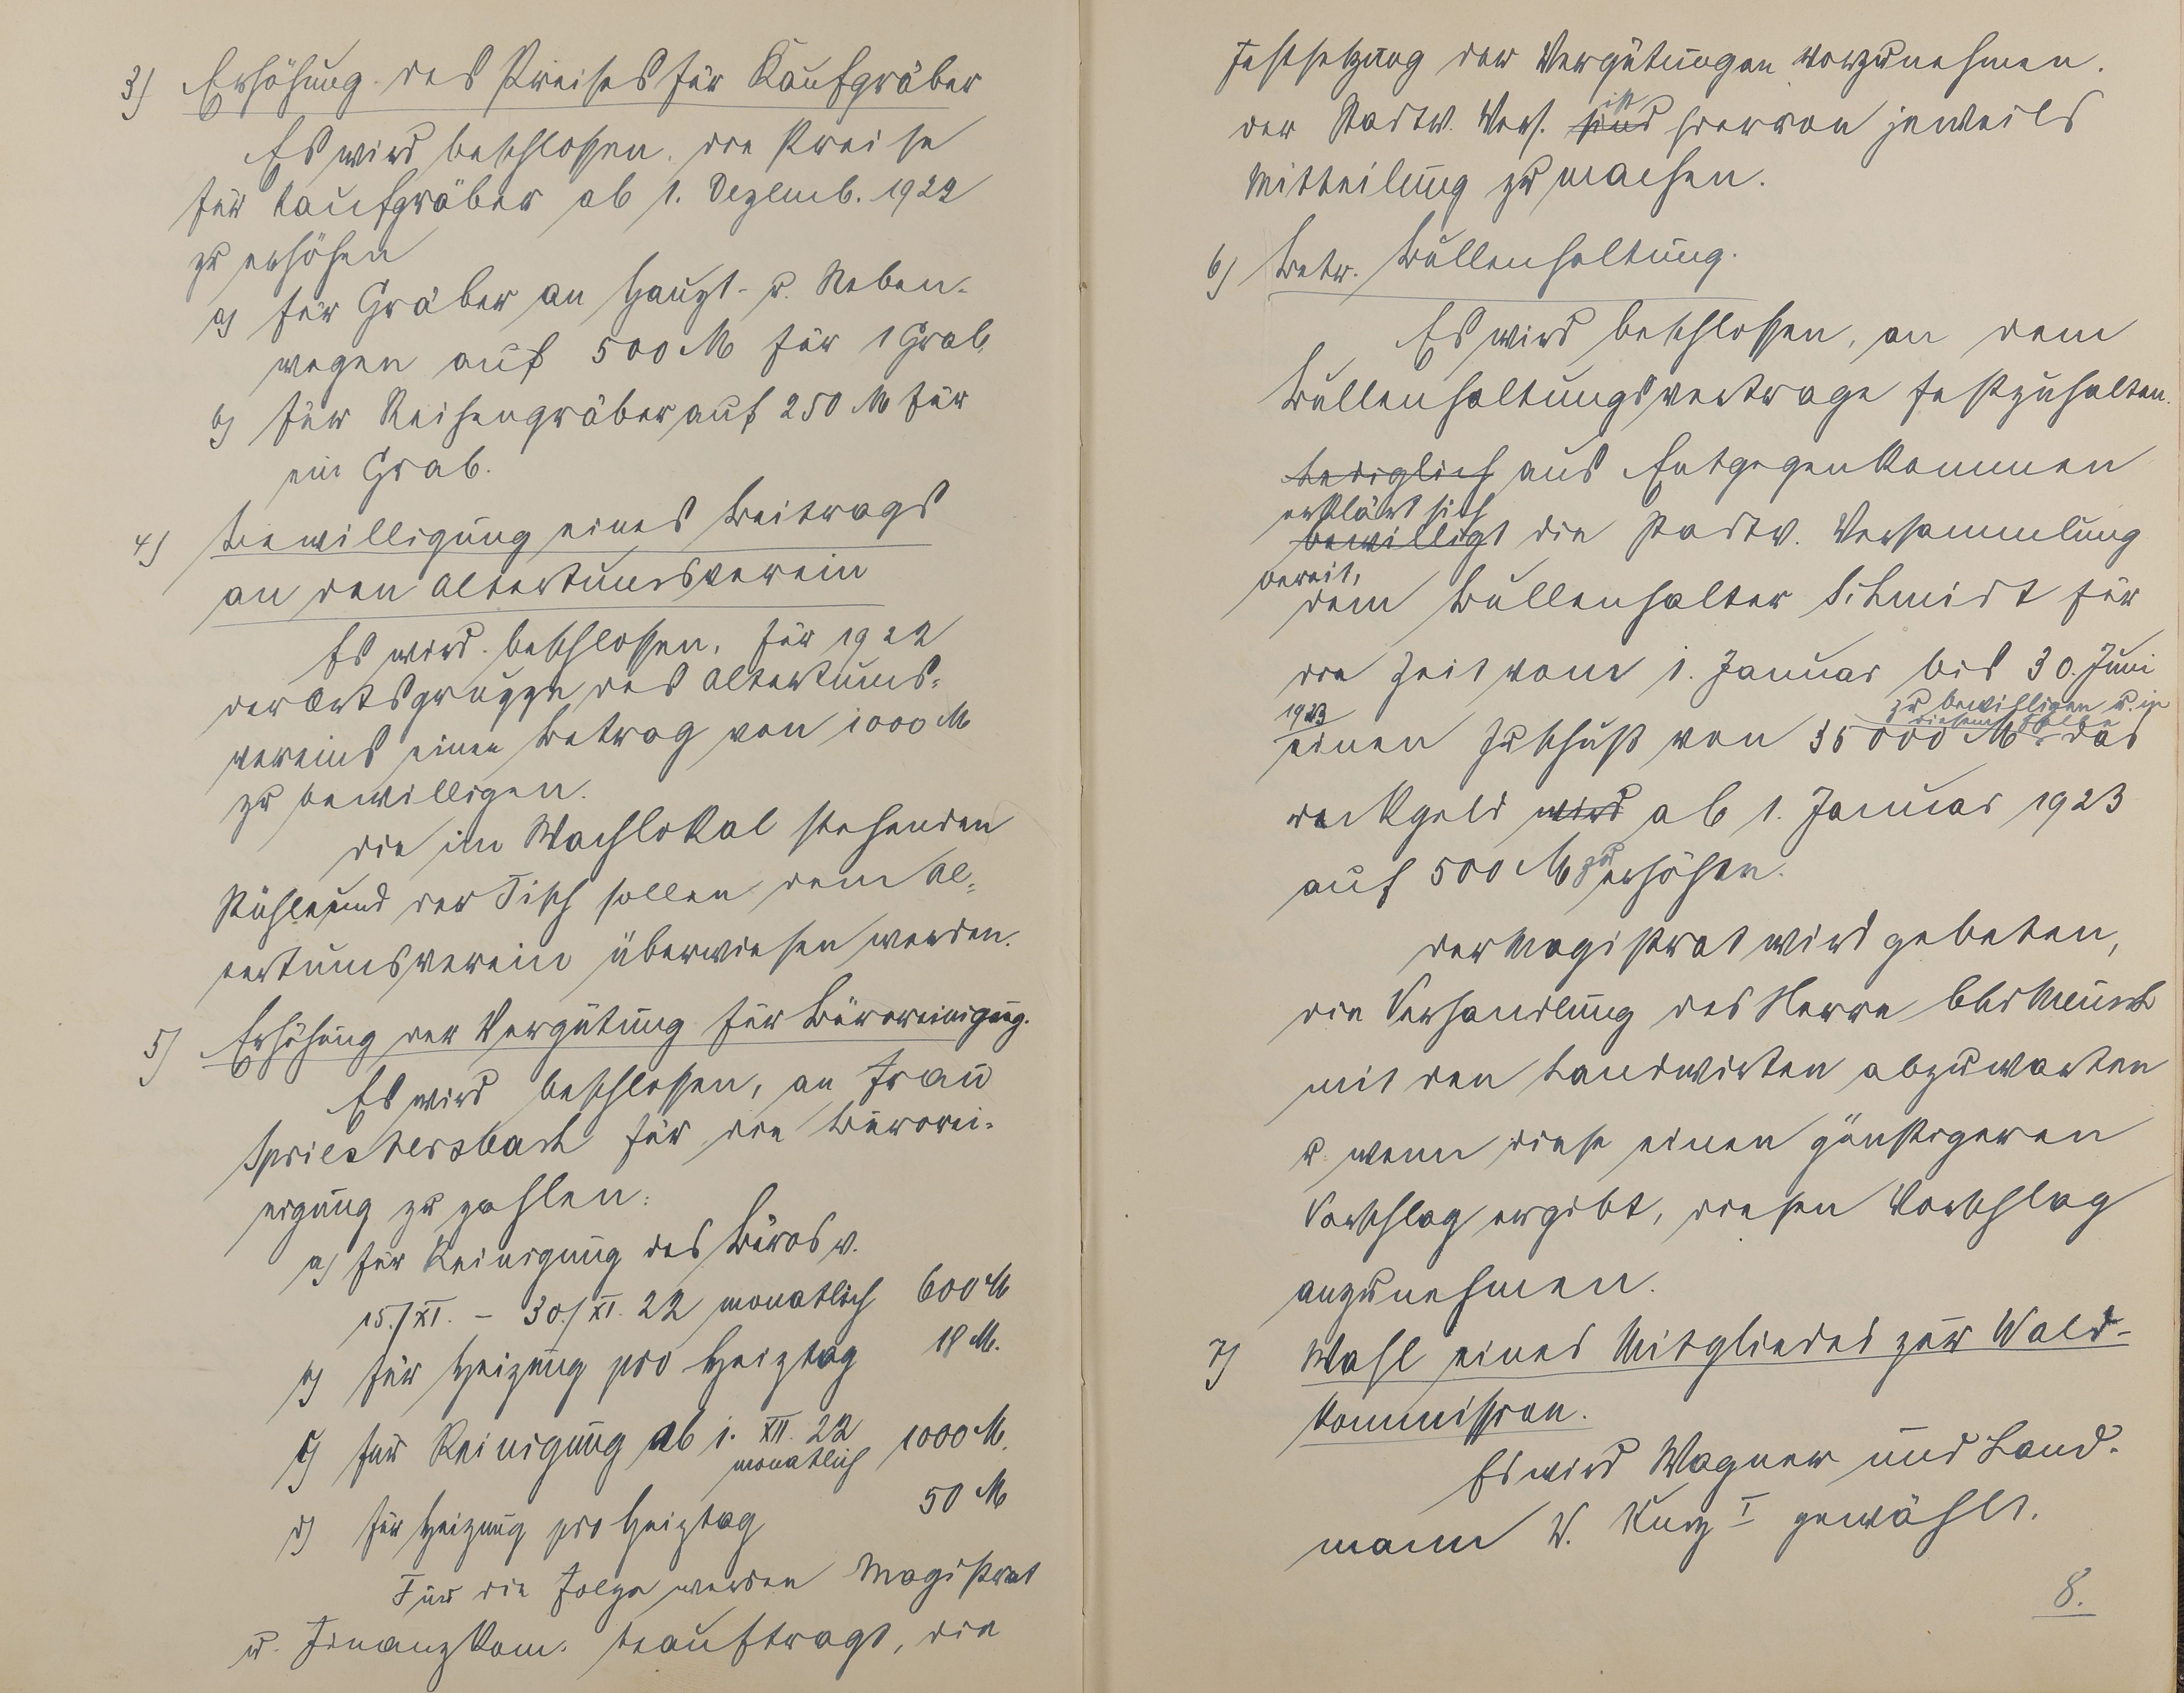 3) Erhöhung des Preises für Kaufgräber
Es wird beschlossen, die Preise
für Kaufgräber ab 1. Dezemb. 1922
zu erhöhen
a) für Gräber an Haupt- u. Neben-
wegen auf 500 M für 1 Grab,
b) für Reihengräber auf 250 M für
ein Grab.
4) Bewilligung eines Beitrags
an den Altertumsverein
Es wird beschlossen, für 1922
der Ortsgruppe des Altertums-
vereins einen Betrag von 1000 M
zu bewilligen.
Die im Wachlokal stehenden
Stühle und der Tisch sollen dem Al-
tertumsverein überwiesen werden.
5) Erhöhung der Vergütung für Büroreinigung.
Es wird beschlossen, an Frau
Spriestersbach für die Bürorei-
nigung zu zahlen:
a) für Reinigung des Büros v.
15./XI. - 30./XI. 22 monatlich 600 M
b) für Heizung pro Heiztag 18 M.
c) für Reinigung ab 1. XII. 22 1000 M.
monatlich
d) für Heizung pro Heiztag 50 M
Für die Folge werden Magistrat
u. Finanzkom. beauftragt, die
Festsetzung der Vergütungen vorzunehmen.
ist
Der Stadtv. Vers. sind hiervon jeweils
Mitteilung zu machen.
6) Betr. Bullenhaltung.
Es wird beschlossen, an dem
Bullenhaltungsvertrage festzuhalten.
Lediglich aus Entgegenkommen
erklärt sich
bewilligt die Stadtv. Versammlung
bereit,
dem Bullenhalter Schmidt für
die Zeit vom 1. Januar bis 30. Juni
1923 zu bewilligen u. in
diesem Falle
einen Zuschuß von 35000 M das
Deckgeld wird ab 1. Januar 1923
auf 500 M zu erhöhen.
Der Magistrat wird gebeten,
die Verhandlung des Herrn
mit den Landwirten abzuwarten
u. wenn diese einen günstigeren
Vorschlag ergibt, diesen Vorschlag
anzunehmen.
7) Wahl eines Mitgliedes zur Wald-
kommission.
Es wird Wagner und Land-
mann W. Kurz I gewählt.
8.